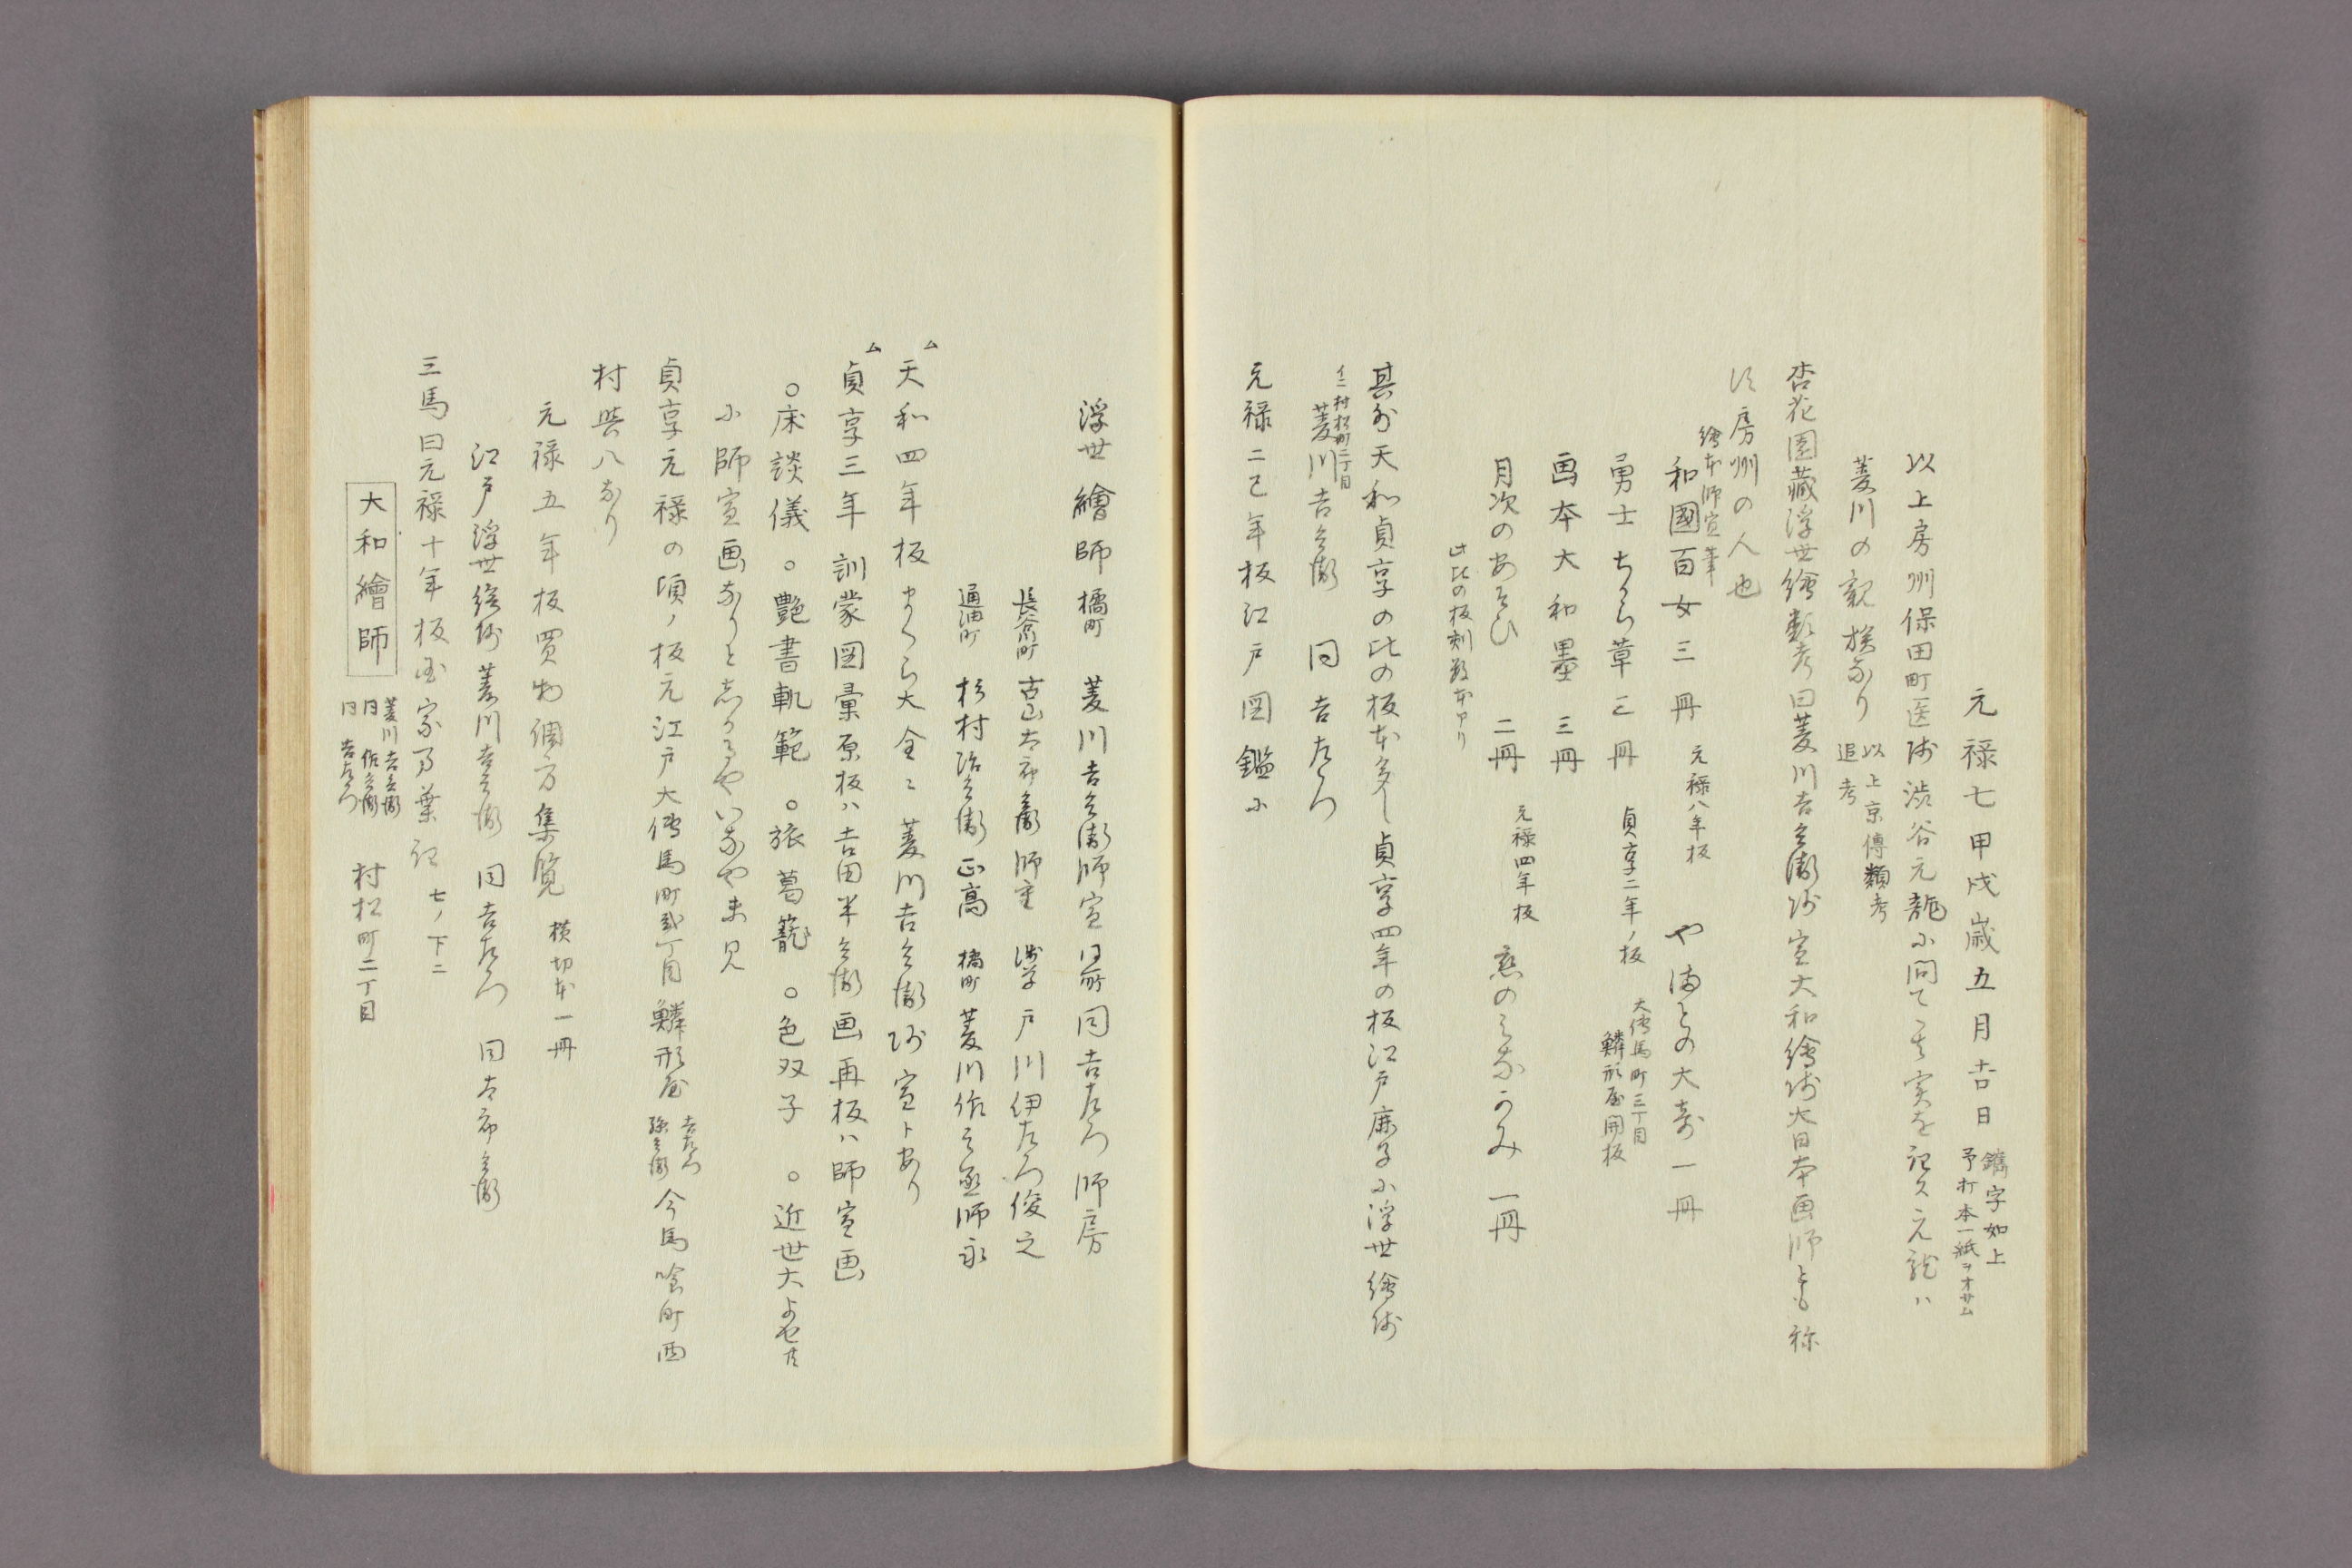 元禄七甲戌歳五月吉日
鐫字如上
予打本一紙ヲオサム
以上房州保田町医師渋谷元龍に問てその実を記久元龍ハ
菱川の親族なり
以上京傳類考
追考
杏花園蔵浮世繪類考曰菱川吉兵衛師宣大和繪師大日本画師とも称
す房州の人也
繪本師宣筆
和國百女三冊 元禄八年板 やまとの大寄一冊
勇士ちから草三冊 貞享二年ノ板
大傳馬町三丁目
鱗形屋開板
画本大和墨 三冊
月次のあそひ 二冊 元禄四年板 恋のみなかみ 一冊
此比の板刻數本ヤリ
其外天和貞享の比の板本多し貞享四年の板江戸鹿子に浮世繪師
イニ村松町二丁目
菱川吉兵衛 同吉左衛門
元禄二己年板江戸図鑑に
浮世繪師 橘町 菱川吉兵衛師宣 同所 同吉左衛門師房
長谷川町 古山太郎兵衛師重 浅草 戸川伊左衛門俊之
通油町 杉村治兵衛正高 橘町 菱川作之丞師永
ム
天和四年板 まくら大全ニ菱川吉兵衛師宣トあり
ム
貞享三年 訓蒙図彙原板ハ吉田半兵衛画再板ハ師宣画
○床談儀 ○艶書軌範 ○旅葛籠 ○色双子 ○近世大よせ共
に師宣画なりと志かるやいなや未見
貞享元禄の頃ノ板元江戸大傳馬町貳丁目 鱗形屋
吉左衛門
孫兵衛
今馬喰町西
村與八なり
元禄五年板買物調方集覧 横切本一冊
江戸浮世絵師 菱川吉兵衛 同吉左衛門 同太郎兵衛
三馬曰元禄十年板国家万葉記 七ノ下ニ
大和繪師
菱川吉兵衛
同 作兵衛
同 吉左衛門
村松町二丁目